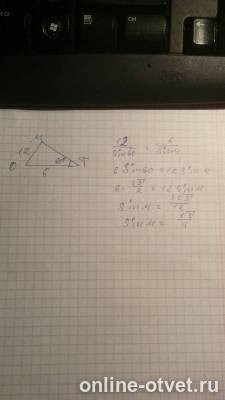 Ctrl
12
O
6
T
12/Sin60 = 6/Sin м
6 Sin60 = 12 Sin м
6 · √3/2 = 12 Sin м
Sin м = 3√3/12
Sin м = √3/4
online-otvet.ru